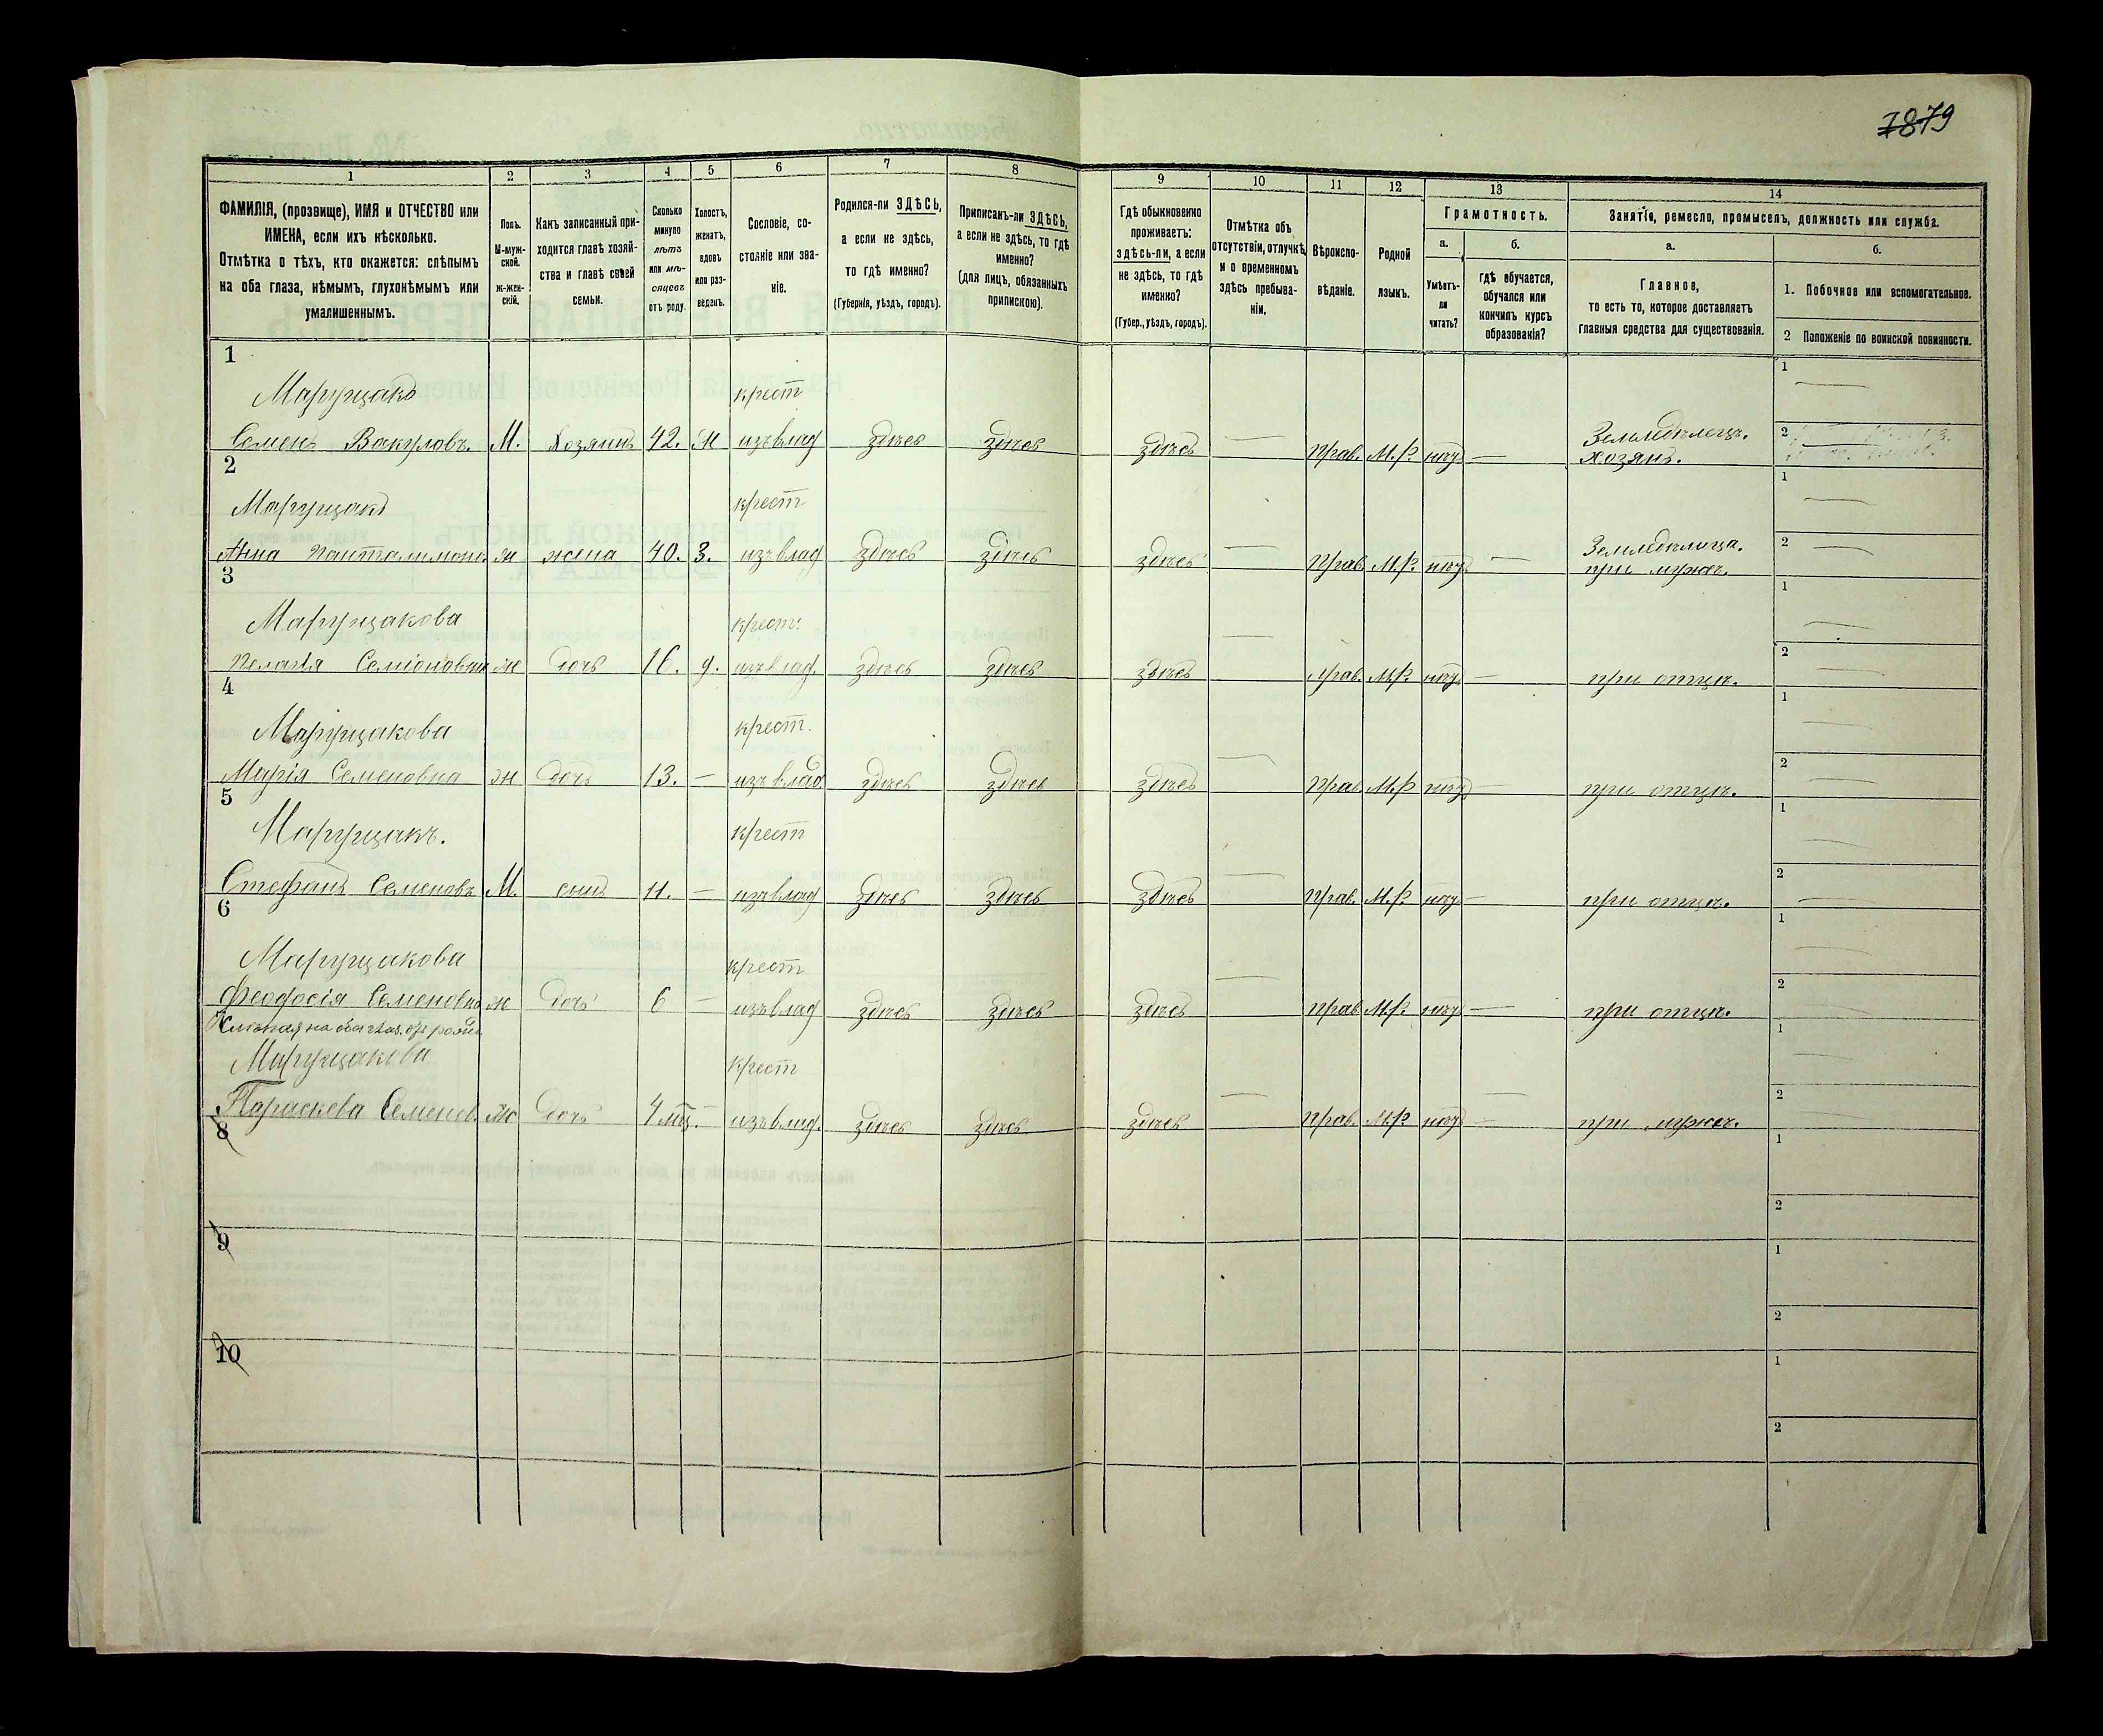 7879
1 2 3 4 5 6 7 8 9 10 11 12 13 14
ФАМИЛІЯ, (прозвище), ИМЯ и ОТЧЕСТВО или ИМЕНА, если ихъ нѣсколько.
Отмѣтка о тѣхъ, кто окажется: слѣпымъ на оба глаза, нѣмымъ, глухонѣмымъ или умалишеннымъ.
Полъ. М-мужской. ж-женскій.
Какъ записанный приходится главѣ хозяйства и главѣ своей семьи.
Сколько минуло лѣтъ или мѣсяцевъ отъ роду.
Холостъ, женатъ, вдовъ или разведенъ.
Сословіе, состояніе или званіе.
Родился-ли ЗДѢСЬ, а если не здѣсь, то гдѣ именно?
(Губернія, уѣздъ, городъ).
Приписанъ-ли ЗДѢСЬ, а если не здѣсь, то гдѣ именно?
(для лицъ, обязанныхъ припискою).
Гдѣ обыкновенно проживаетъ: здѣсь-ли, а если не здѣсь, то гдѣ именно?
(Губер., уѣздъ, городъ).
Отмѣтка объ отсутствіи, отлучкѣ и о временномъ здѣсь пребываніи.
Вѣроисповѣданіе.
Родной языкъ.
Грамотность.
а. Умѣетъ-ли читать?
б. гдѣ обучается, обучался или кончилъ курсъ образованія?
Занятіе, ремесло, промыселъ, должность или служба.
а. Главное, то есть то, которое доставляетъ главныя средства для существованія.
б.
1. Побочное или вспомогательное.
2 Положеніе по воинской повинности.
1
Марущакъ крест 1 —
Семенъ Вакуловъ. М. Хозяинъ 42. М изъ влад здѣсь здѣсь здѣсь — Прав. М.Р. нѣтъ — Земледѣлецъ. хозяинъ. 2
2
Марущакъ крест 1 —
Анна Пантелимоно. ж жена 40. З. изъ влад здѣсь здѣсь здѣсь — Прав М.Р нѣтъ — Земледѣлица. при мужѣ. 2 —
3
Марущакова крест. 1 —
Пелагія Семіоновна ж дочь 16. д. изъ влад. здѣсь здѣсь здѣсь — Прав. М.Р. нѣтъ — при отцѣ. 2 —
4
Марущакова крест. 1 —
Марія Семеновна ж дочь 13. — изъ влад здѣсь здѣсь здѣсь — Прав. М.Р нѣтъ — при отцѣ. 2 —
5
Марущакъ. крест 1 —
Стефанъ Семеновъ М. сынъ 11. — изъ влад здѣсь здѣсь здѣсь — Прав. М.Р. нѣтъ — при отцѣ. 2 —
6
Марущакова крест 1 —
Феодосія Семеновна ж дочь 6 — изъ влад здѣсь здѣсь здѣсь — Прав М.Р нѣтъ — при отцѣ. 2
на оба
Марущакова крест 1 —
Параскева Семенов. ж дочь 4 мѣс. — изъ влад. здѣсь здѣсь здѣсь — Прав. М.Р нѣтъ — при мужѣ. 2 —
8 1
2
9 1
2
10 1
2